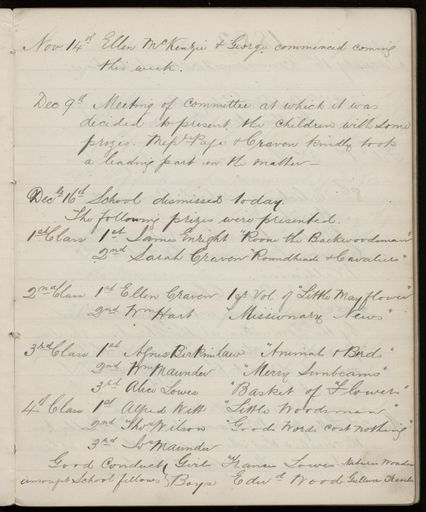 Nov 14th Ellen McKenzie & George commenced coming
this week.
Dec 9th Meeting of Committee at which it was
decided to present the children with some
prizes. Messrs Page & Craven kindly took
a leading part in the matter—
Decbr 16th School dismissed today.
The following prizes were presented.
1st Class 1st James Enright "Roon the Backwoodsman"
2nd Sarah Craven "Roundheads & Cavaliers"
2nd Class 1st Ellen Craven 1 yrs Vol of "Little Mayflower"
2nd Wm Hart "Missionary News"
3rd Class 1st Agnes Birkinshaw "Animal & Birds"
2nd Wm Maunder "Merry Sunbeams"
3rd Alice Lowes "Basket of Flowers"
4th Class 1st Alfred Witt "Little Woodsman"
2nd Thos Wilson "Good Words cost nothing"
3rd Maunder
Good Conduct Girls Frances Lowes Natures Wonders
amongst School fellows Boys Edwd Wood Gullivers Travels